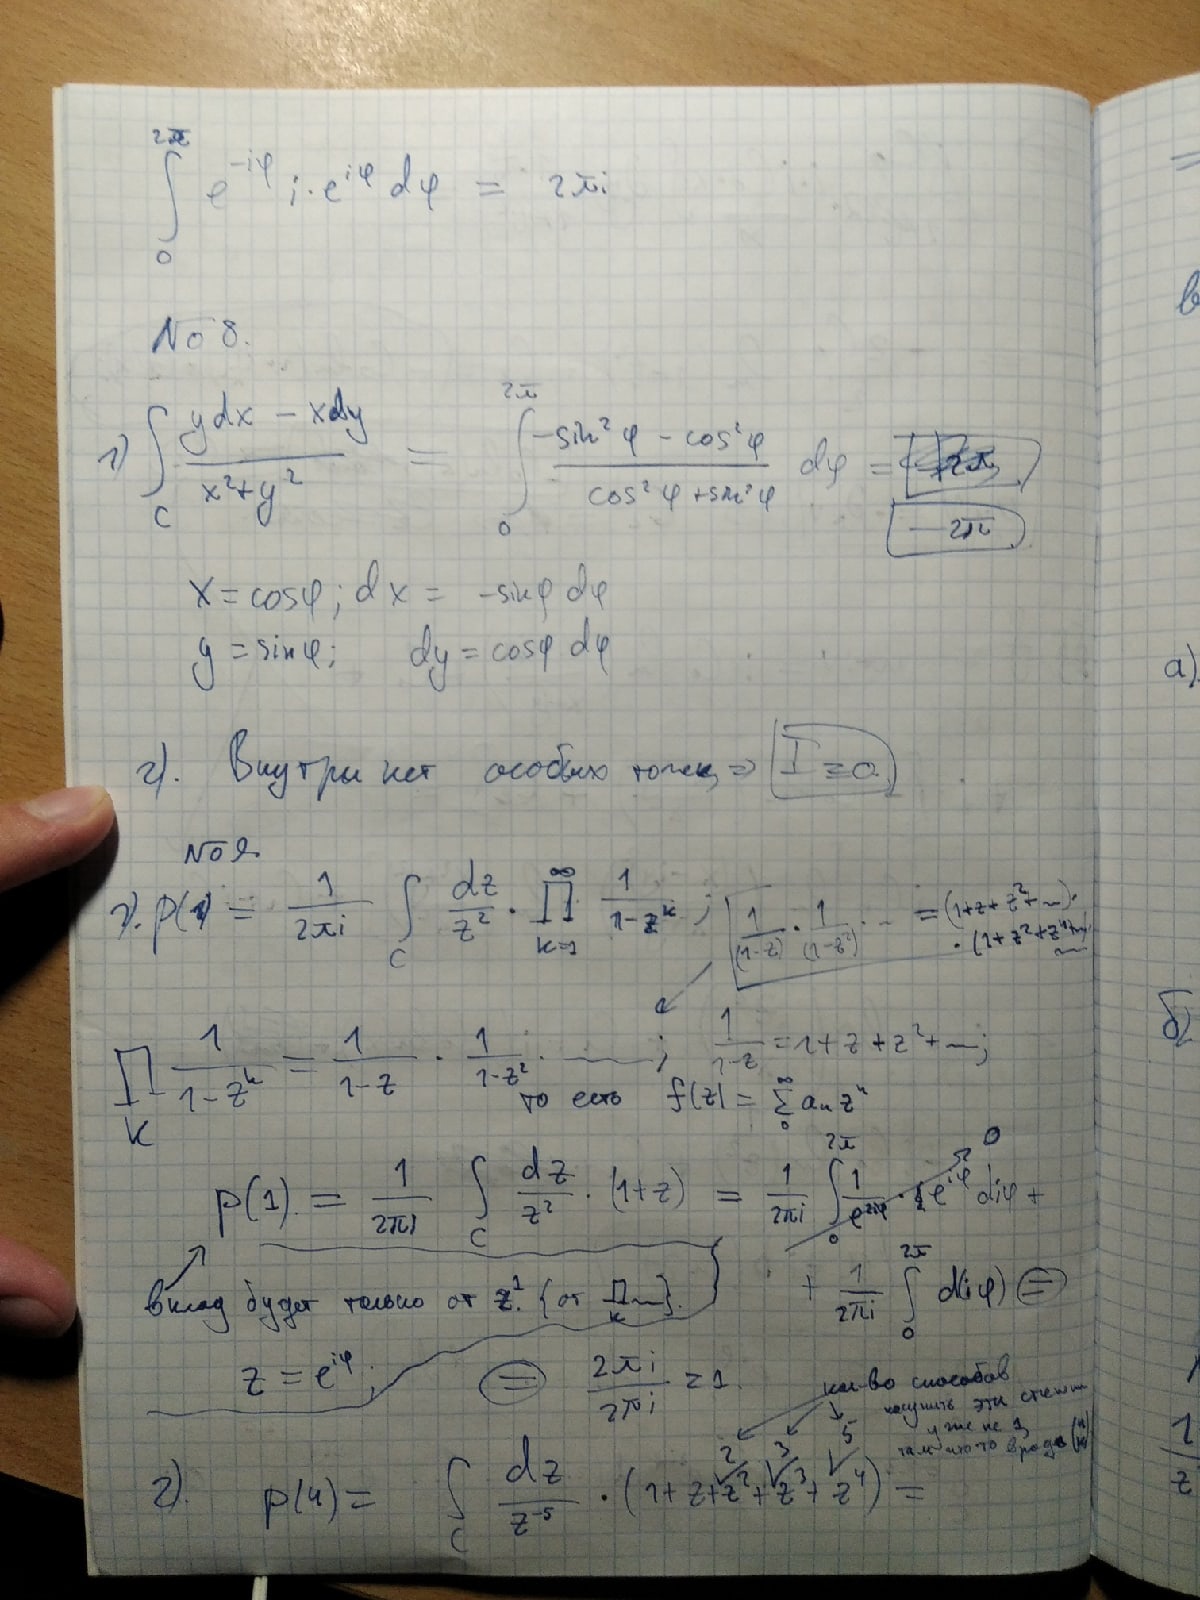 ∫₀^{2π} e^{-iφ} i·e^{iφ} dφ = 2πi
No 8.
1) ∫_C (ydx − xdy)/(x²+y²) = ∫₀^{2π} (−sin²φ − cos²φ)/(cos²φ + sin²φ) dφ =
−2π
x = cosφ; dx = −sinφ dφ
y = sinφ; dy = cosφ dφ
2). Внутри нет особых точек ⇒ I = 0
No 9.
1. p(1) = 1/(2πi) ∫_C dz/z² · ∏_{k=1}^∞ 1/(1−z^k); 1/(1−z) · 1/(1−z²) ··· = (1+z+z²+...)·
·(1+z²+z⁴+...)
∏_k 1/(1−z^k) = 1/(1−z) · 1/(1−z²) · ...; 1/(1−z) = 1+z+z²+...;
то есть f(z) = ∑₀^∞ aₙzⁿ
p(1) = 1/(2πi) ∫_C dz/z² · (1+z) = 1/(2πi) ∫₀^{2π} 1/e^{2iφ} · e^{iφ} diφ + 0
+ 1/(2πi) ∫₀^{2π} d(iφ) =
вклад будет только от z¹ {от ∏_k ...}.
z = e^{iφ}; = 2πi/2πi = 1
кол-во способов
получить эти степени
уже не 1,
2 3 5
2). p(4) = ∫_C dz/z^{-5} · (1+z+z²+z³+z⁴) =
в
а)
б)
1/z